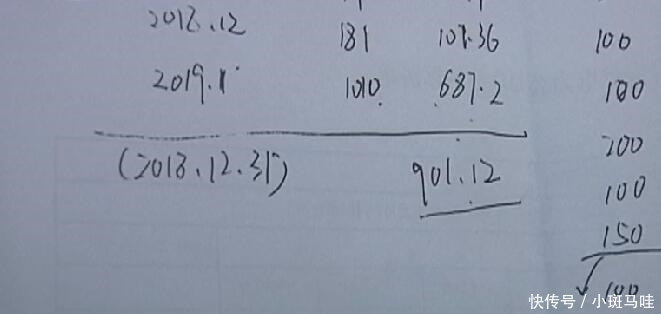 2018.12 181 107.36 100
2019.1 1010 687.2 100
200
(2018.12.31) 901.12
100
150
100
快传号 / 小斑马哇